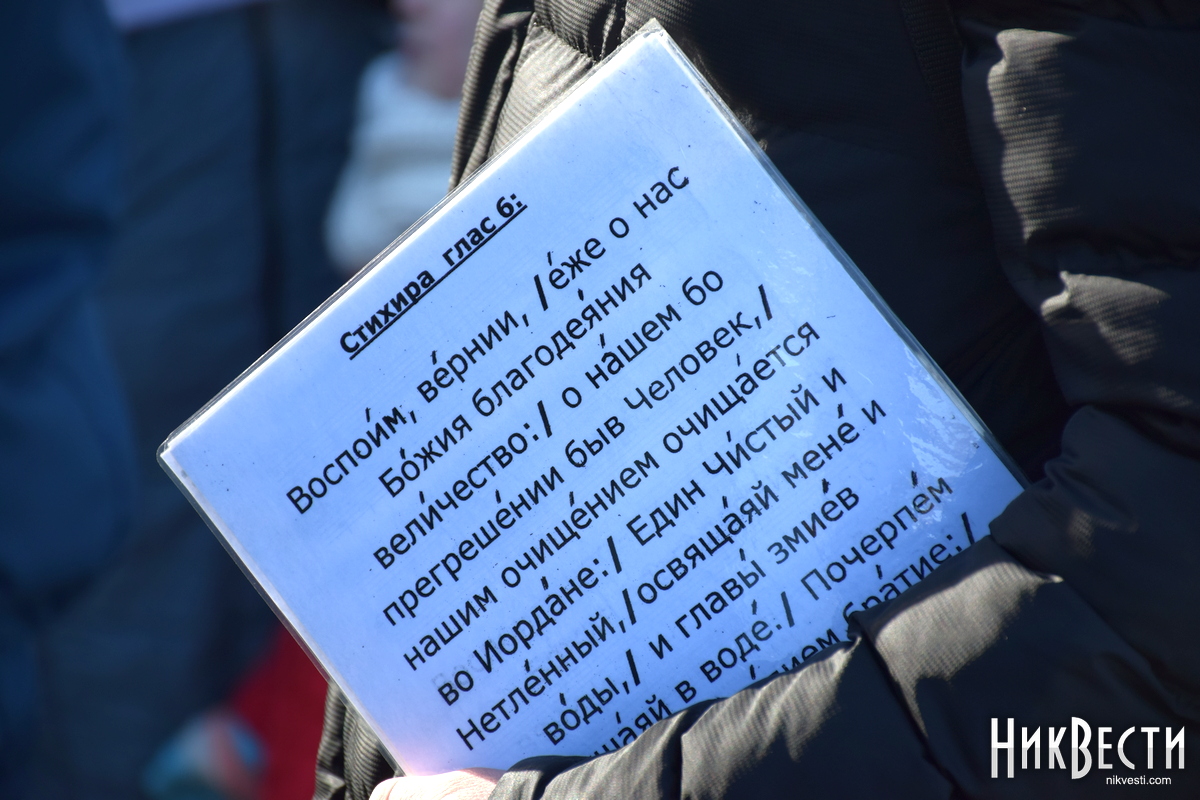 Стихира глас 6:
Воспои́м, ве́рнии, /е́же о нас
Бо́жия благодея́ния
вели́чество:/ о на́шем бо
прегреше́нии быв Человек,/
нашим очище́нием очища́ется
во Иорда́не:/ Един Чи́стый и
Нетле́нный,/освяща́яй мене́ и
во́ды,/ и главы́ змие́в
в воде́:/ Почерпе́м
бра́тие:/
НикВести
nikvesti.com